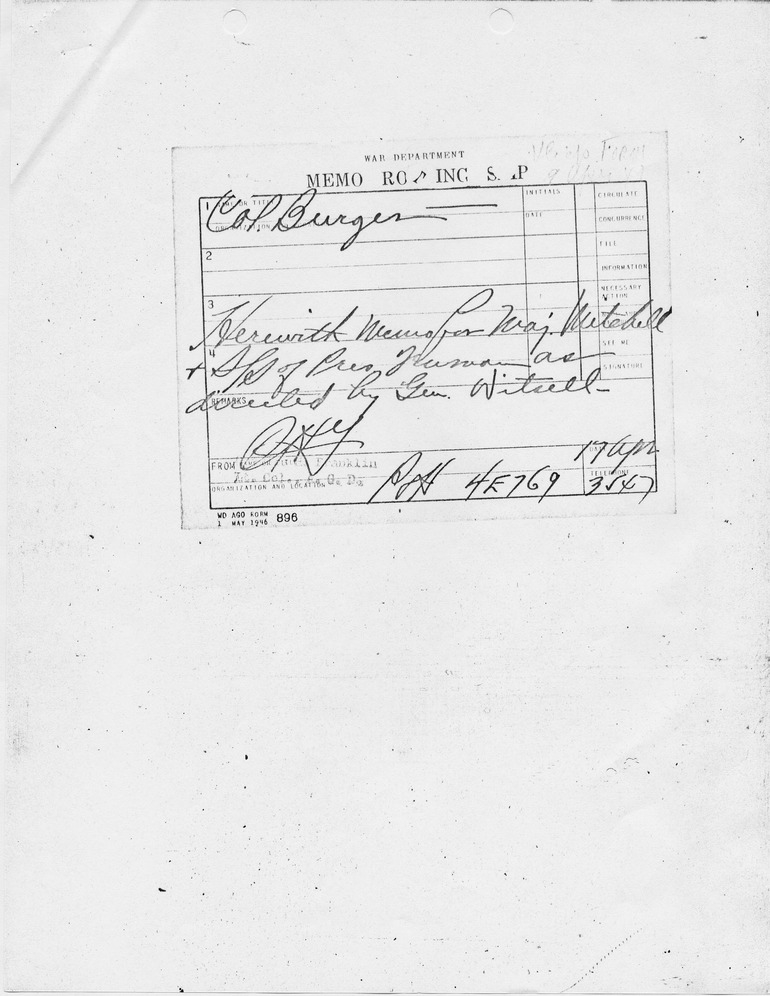 WAR DEPARTMENT
MEMO RO ING S. IP
1 NAME OR TITLE INITIALS CIRCULATE
Col. Burger
ORGANIZATION DATE CONCURRENCE
2 FILE
INFORMATION
3 NECESSARY ACTION
Herewith memo for Maj. Mitchell
4 SEE ME
+ S/S of Pres. Truman as
SIGNATURE
directed by Gen. Witsell
REMARKS
FROM Franklin 17 Apr
Lt. Col., A. G. D.
ORGANIZATION AND LOCATION 4E769 TELEPHONE 3547
WD AGO FORM 896
1 MAY 1946